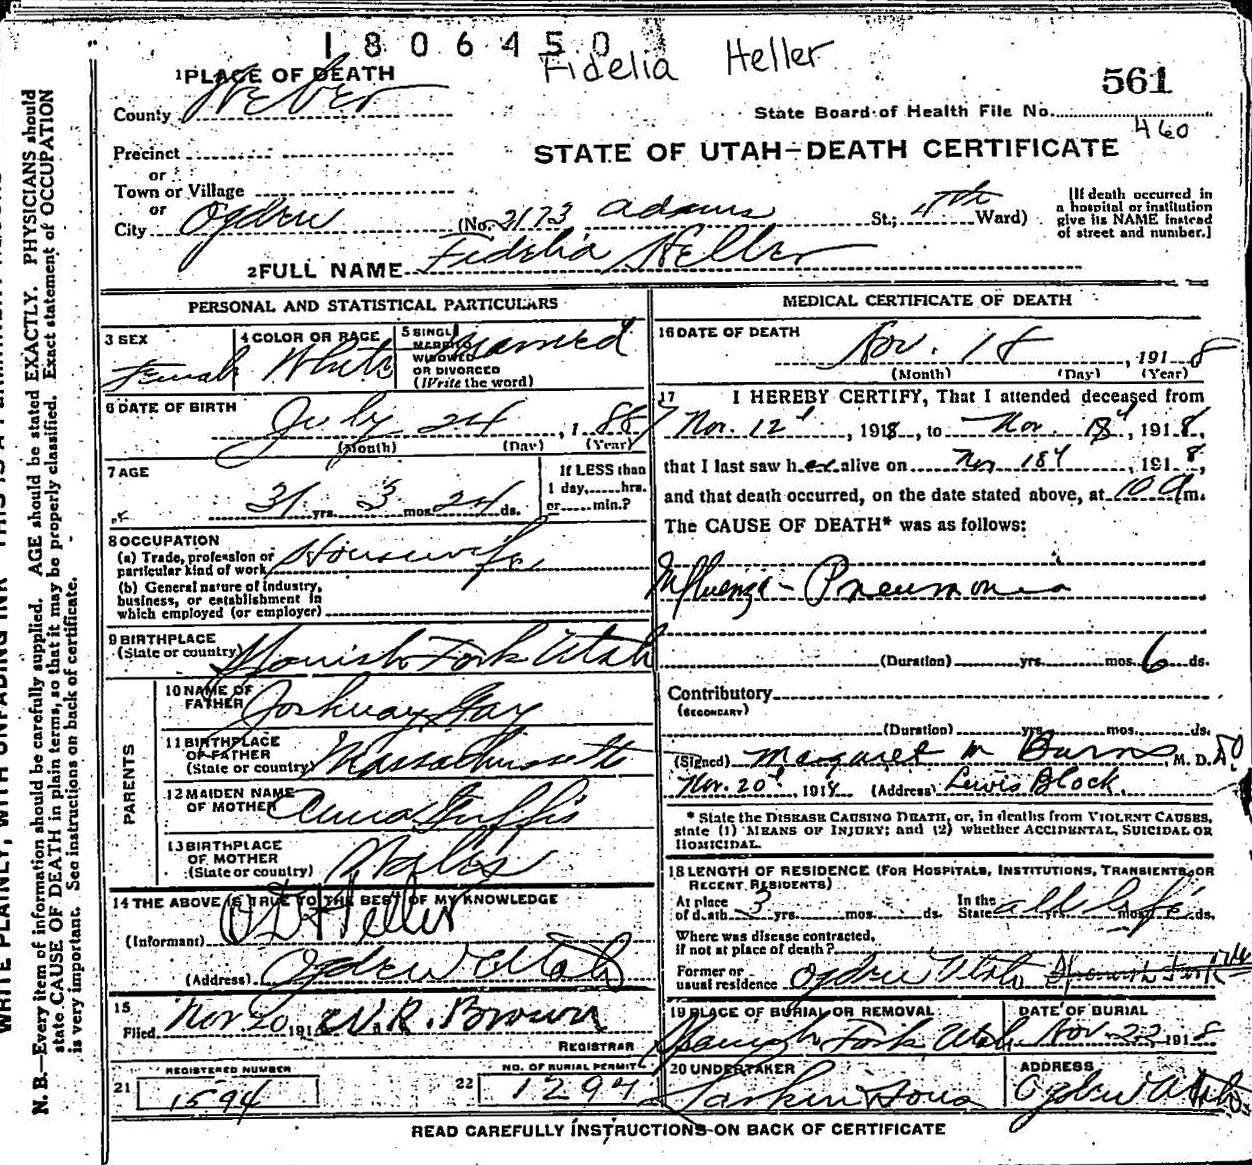 1806450
Fidelia Heller
561
1 PLACE OF DEATH
County Weber
State Board of Health File No.
460
Precinct
or
Town or Village
or
City Ogden
STATE OF UTAH—DEATH CERTIFICATE
(No. 2173 Adams St.; 4th Ward)
[If death occurred in a hospital or institution give its NAME instead of street and number.]
2 FULL NAME Fidelia Heller
PERSONAL AND STATISTICAL PARTICULARS
3 SEX Female
4 COLOR OR RACE White
5 SINGLE MARRIED WIDOWED OR DIVORCED (Write the word) Married
6 DATE OF BIRTH July 24, 188
(Month) (Day) (Year)
7 AGE 31 yrs. 3 mos. 24 ds.
If LESS than 1 day, hrs. or min.?
8 OCCUPATION
(a) Trade, profession or particular kind of work Housewife
(b) General nature of industry, business, or establishment in which employed (or employer)
9 BIRTHPLACE (State or country) Spanish Fork Utah
PARENTS
10 NAME OF FATHER Gay
11 BIRTHPLACE OF FATHER (State or country) Massachusetts
12 MAIDEN NAME OF MOTHER
13 BIRTHPLACE OF MOTHER (State or country) Wales
14 THE ABOVE IS TRUE TO THE BEST OF MY KNOWLEDGE
(Informant) O D Heller
(Address) Ogden Utah
15
Filed Nov 20 191 W.R. Brown
REGISTRAR
REGISTERED NUMBER
21 1594
NO. OF BURIAL PERMIT
22 1294
MEDICAL CERTIFICATE OF DEATH
16 DATE OF DEATH Nov. 18, 1918
(Month) (Day) (Year)
17 I HEREBY CERTIFY, That I attended deceased from
Nov. 12, 1918, to Nov. 18, 1918,
that I last saw her alive on Nov 18, 1918,
and that death occurred, on the date stated above, at 10 a m.
The CAUSE OF DEATH* was as follows:
Influenza - Pneumonia
(Duration) yrs. mos. 6 ds.
Contributory
(SECONDARY)
(Duration) yrs. mos. ds.
(Signed) Margaret M Burns, M. D.
Nov. 20, 1918 (Address) Lewis Block.
* State the DISEASE CAUSING DEATH, or, in deaths from VIOLENT CAUSES, state (1) MEANS OF INJURY; and (2) whether ACCIDENTAL, SUICIDAL OR HOMICIDAL.
18 LENGTH OF RESIDENCE (FOR HOSPITALS, INSTITUTIONS, TRANSIENTS, OR RECENT RESIDENTS)
At place of death 3 yrs. mos. ds. In the State all life yrs. mos. ds.
Where was disease contracted, if not at place of death?
Former or usual residence Ogden Utah Spanish Fork
19 PLACE OF BURIAL OR REMOVAL Spanish Fork Utah
DATE OF BURIAL Nov. 22 1918
20 UNDERTAKER Larkin Sons
ADDRESS Ogden Utah
READ CAREFULLY INSTRUCTIONS ON BACK OF CERTIFICATE
N. B.—Every item of information should be carefully supplied. AGE should be stated EXACTLY. PHYSICIANS should
state CAUSE OF DEATH in plain terms, so that it may be properly classified. Exact statement of OCCUPATION
is very important. See instructions on back of certificate.
WRITE PLAINLY, WITH UNFADING INK—THIS IS A PERMANENT RECORD